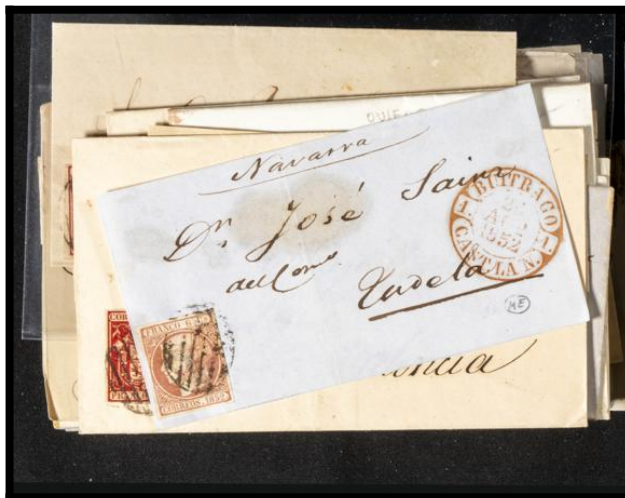 Navarra
Dn. José Sainz
del Como
Tudela
BUITRAGO
1852
CAST.LA N.
FRANCO 6 Cs
CORREOS. 1852
ME
COR
encia